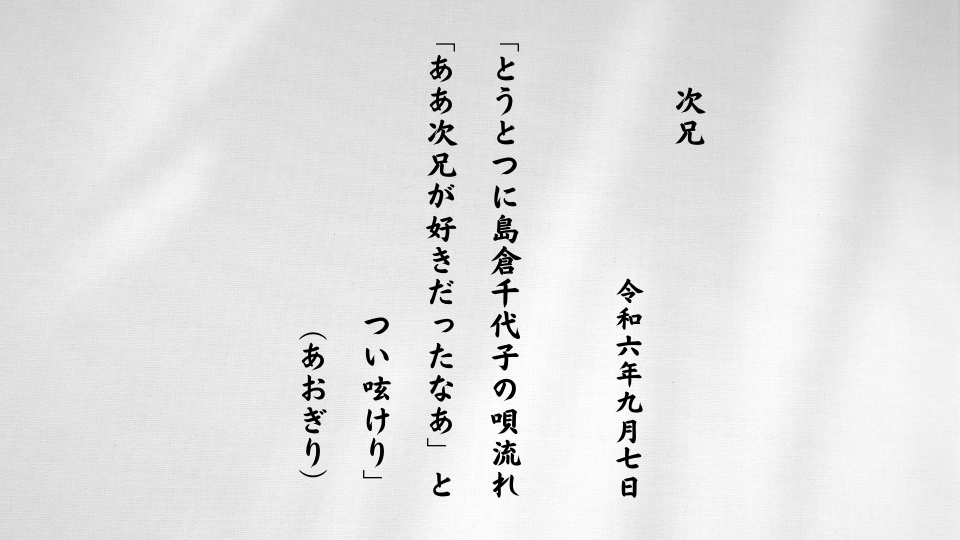 次兄
令和六年九月七日
「とうとつに島倉千代子の唄流れ
「ああ次兄が好きだったなあ」と
つい呟けり」
（あおぎり）